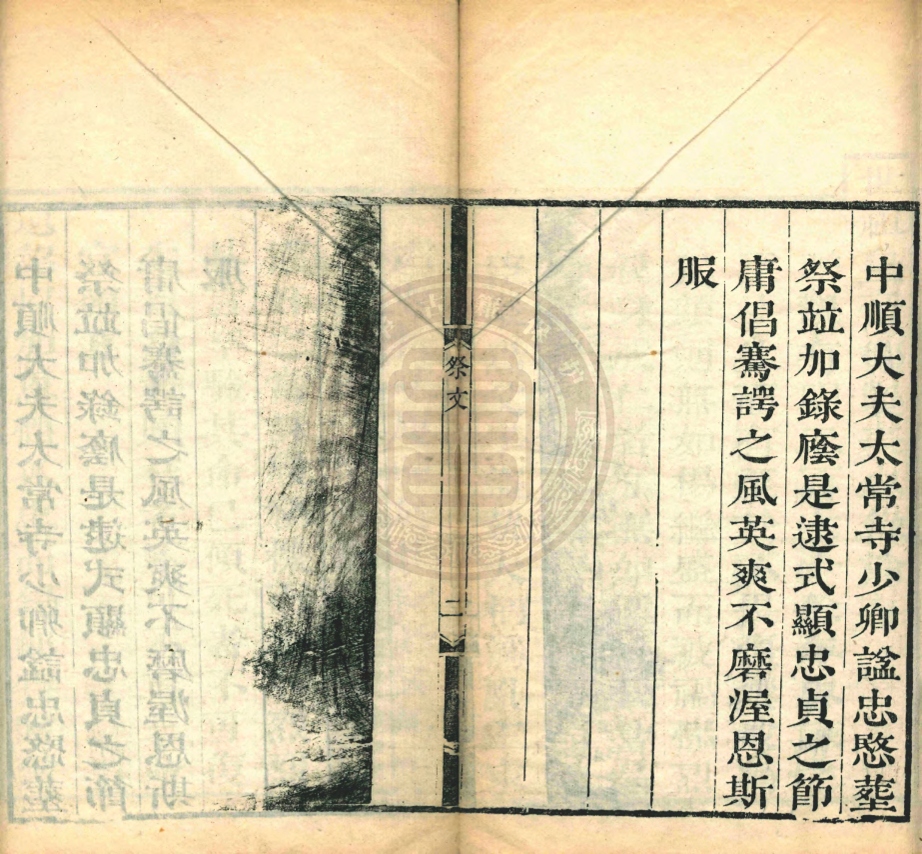 中順大夫太常寺少卿謚忠愍塟
祭竝加錄廕是逮式顯忠貞之節
庸倡謇諤之風英爽不磨渥恩斯
服
祭文
二